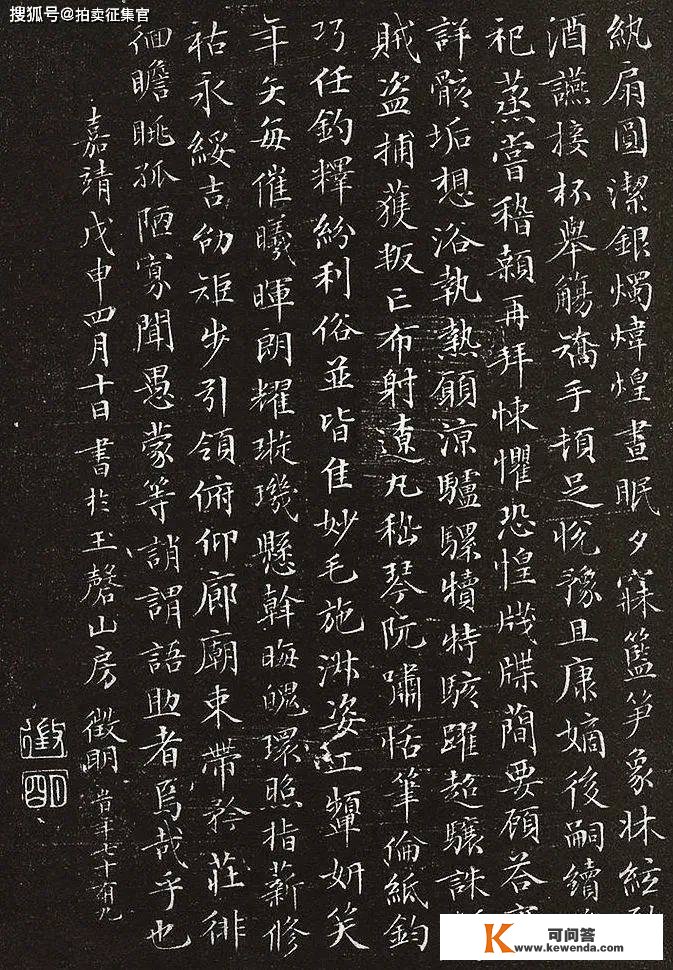 搜狐号@拍卖征集官
紈扇圓潔銀燭煒煌晝眠夕寐籃筍象牀絃
酒讌接杯舉觴矯手頓足悅豫且康嫡後嗣續
祀蒸嘗稽顙再拜悚懼恐惶牋牒簡要顧荅
詳骸垢想浴執熱願涼驢騾犢特駭躍超驤誅
賊盜捕獲叛亡布射遼丸嵇琴阮嘯恬筆倫紙鈞
巧任釣釋紛利俗並皆佳妙毛施淑姿工顰妍笑
年矢每催曦暉朗耀璇璣懸斡晦魄環照指薪修
祜永綏吉劭矩步引領俯仰廊廟束帶矜莊徘
徊瞻眺孤陋寡聞愚蒙等誚謂語助者焉哉乎也
嘉靖戊申四月十日書於玉磬山房徵明時年七十有九
徵明
K 可问答
www.kewenda.com